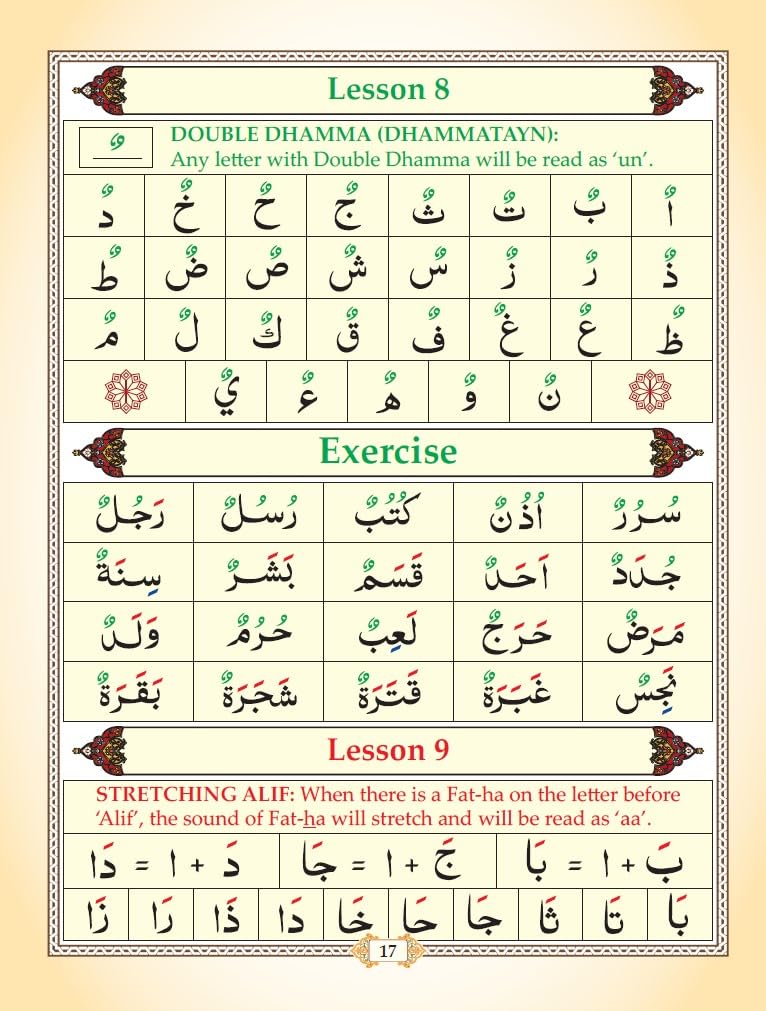 Lesson 8
ـٌ DOUBLE DHAMMA (DHAMMATAYN):
Any letter with Double Dhamma will be read as ‘un’.
اٌ بٌ تٌ ثٌ جٌ حٌ خٌ دٌ
ذٌ رٌ زٌ سٌ شٌ صٌ ضٌ طٌ
ظٌ عٌ غٌ فٌ قٌ كٌ لٌ مٌ
نٌ وٌ هٌ ءٌ يٌ
Exercise
سُرُرٌ اُذُنٌ كُتُبٌ رُسُلٌ رَجُلٌ
جُدَدٌ اَحَدٌ قَسَمٌ بَشَرٌ سِنَةٌ
مَرَضٌ حَرَجٌ لَعِبٌ حُرُمٌ وَلَدٌ
نَجِسٌ غَبَرَةٌ قَتَرَةٌ شَجَرَةٌ بَقَرَةٌ
Lesson 9
STRETCHING ALIF: When there is a Fat-ha on the letter before
‘Alif’, the sound of Fat-ha will stretch and will be read as ‘aa’.
بَ + ا = بَا جَ + ا = جَا دَ + ا = دَا
بَا تَا ثَا جَا حَا خَا دَا ذَا رَا زَا
17